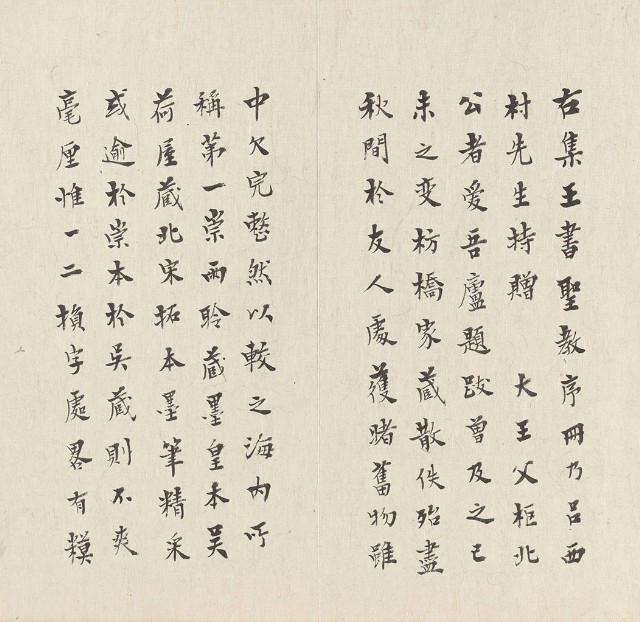 右集王書聖教序冊乃呂西
村先生持贈　大王父柜北
公者愛吾廬題跋曾及之己
未之變枋橋家蔵散佚殆盡
秋間於友人處獲睹舊物雖
中欠完整然以較之海內所
稱第一崇雨聆蔵墨皇本吳
荷屋蔵北宋拓本墨筆精采
或逾於崇本於吳蔵則不爽
毫厘惟一二損字處畧有糢